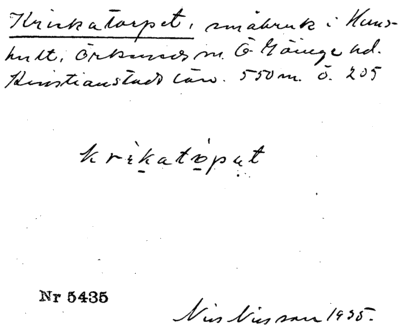 Krikatorpet, småbruk i Huns-
hult, Örkeneds sn. Ö Göinge hd.
Kristianstads län. 550 m. ö. 205
krikatọpụt
Nr 5435
Nils Nilsson 1935.